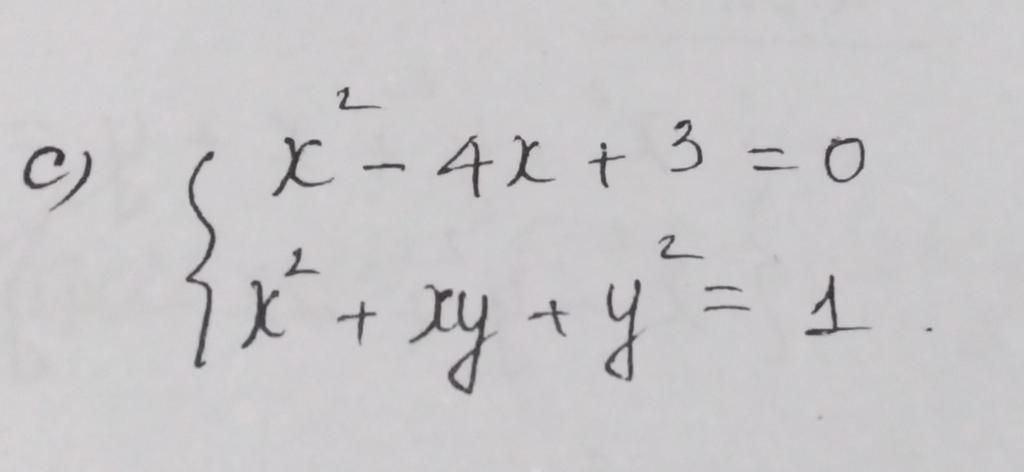 c) { x² - 4x + 3 = 0
x² + xy + y² = 1.